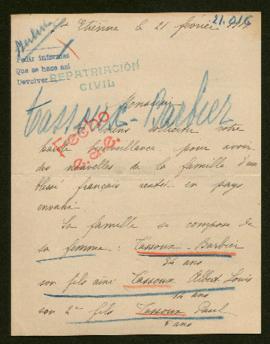 St Etienne le 21 février 1917
21.016
Pedir informes
Que se hace así
Devolver
REPATRIACIÓN
CIVIL
Tassoux-Barbier
Monsieur
Hecho
votre
haute bienveillance pour avoir
des nouvelles de la famille d'un
blessé français resté en pays
envahi
La famille se compose de
sa femme : Tassoux-Barbier
34 ans
son fils aîné Tassoux Albert Louis
12 ans
son 2e fils Tassoux Paul
8 ans